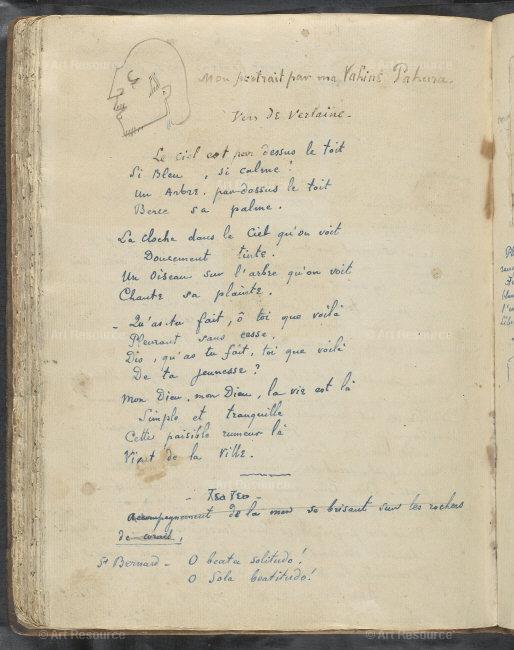 Mon portrait par ma Vahine Pahura.
Vers de Verlaine.
Le ciel est par dessus le toit
Si Bleu, si calme!
Un Arbre, par dessus le toit
Berce sa palme.
La cloche dans le Ciel qu'on voit
Doucement tinte.
Un Oiseau sur l'arbre qu'on voit
Chante sa plainte.
- Qu'as-tu fait, ô toi que voilà
Pleurant sans cesse.
Dis, qu'as tu fait, toi que voilà
De ta jeunesse?
Mon Dieu, mon Dieu, la vie est là
Simple et tranquille
Cette paisible rumeur là
Vient de la Ville.
Accompagnement de la mer se brisant sur les rochers
de corail,
St Bernard - O beata solitudo!
O Sola beatitudo!
© Art Resource